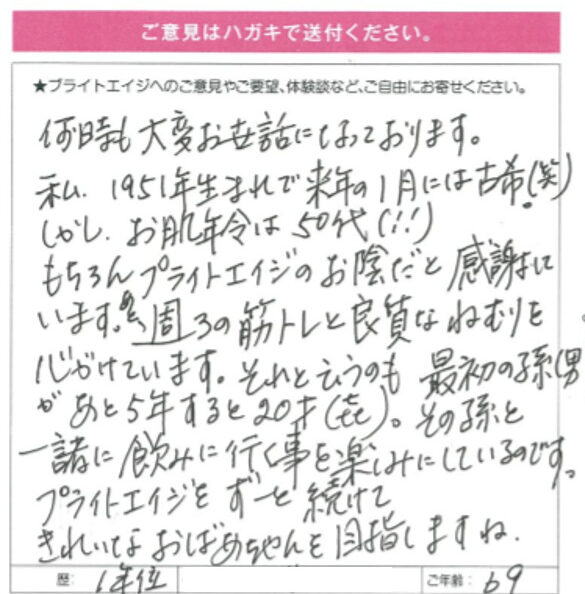 ご意見はハガキで送付ください。
★ブライトエイジへのご意見やご要望、体験談など、ご自由にお寄せください。
何時も大変お世話になっております。
私、1951年生まれで来年の1月には古希(笑)
しかし、お肌年令は50代(!!)
もちろんブライトエイジのお陰だと感謝して
います。週3の筋トレと良質なねむりを
心がけています。それと云うのも最初の孫(男)
があと5年すると20才(㐂)。その孫と
一諸に飲みに行く事を楽しみにしているのです。
ブライトエイジをずーと続けて
きれいなおばあちゃんを目指しますね。
歴: 6年位 ご年齢: 69